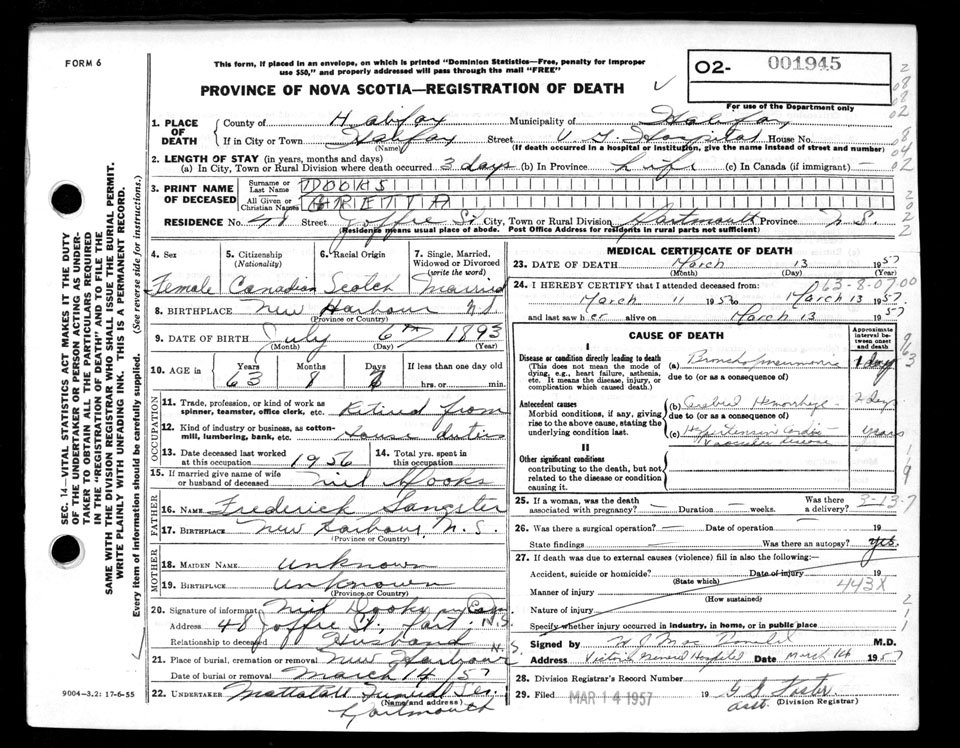 FORM 6
This form, if placed in an envelope, on which is printed "Dominion Statistics—Free, penalty for improper
use $50," and properly addressed will pass through the mail "FREE"
02- 001945
For use of the Department only
PROVINCE OF NOVA SCOTIA—REGISTRATION OF DEATH
1. PLACE OF DEATH
County of Halifax Municipality of Halifax
If in City or Town Halifax Street V. G. Hospital House No.
(Name) (If death occurred in a hospital or institution, give the name instead of street and number)
2. LENGTH OF STAY (in years, months and days)
(a) In City, Town or Rural Division where death occurred 3 days (b) In Province Life (c) In Canada (if immigrant) —
3. PRINT NAME OF DECEASED
Surname or Last Name DOOKS
All Given or Christian Names GRETTA
RESIDENCE No. 48 Street Joffre St. City, Town or Rural Division Dartmouth Province N.S.
(Residence means usual place of abode. Post Office Address for residents in rural parts not sufficient)
4. Sex
Female
5. Citizenship (Nationality)
Canadian
6. Racial Origin
Scotch
7. Single, Married, Widowed or Divorced (write the word)
Married
8. BIRTHPLACE New Harbour N.S.
(Province or Country)
9. DATE OF BIRTH July 6th 1893
(Month) (Day) (Year)
10. AGE Years Months Days If less than one day old
63 8 hrs. or min.
OCCUPATION
11. Trade, profession, or kind of work as spinner, teamster, office clerk, etc. Retired from
12. Kind of industry or business, as cotton-mill, lumbering, bank, etc. House duties
13. Date deceased last worked at this occupation 1956
14. Total yrs. spent in this occupation
15. If married give name of wife or husband of deceased Dooks
FATHER
16. Name Frederick Sangster
17. Birthplace New Harbour, N.S.
(Province or Country)
MOTHER
18. Maiden Name Unknown
19. Birthplace Unknown
(Province or Country)
20. Signature of informant Dooks
Address 48 Joffre St., Dart. N.S.
Relationship to deceased Husband
21. Place of burial, cremation or removal New Harbour N.S.
March 14/57
22. Undertaker Mattatall Funeral Ser.
(Name and address)
Dartmouth
9004-3.2: 17-6-55
MEDICAL CERTIFICATE OF DEATH
23. DATE OF DEATH March 13 1957
(Month) (Day) (Year)
24. I HEREBY CERTIFY that I attended deceased from:
63-8-0700
March 11 1957 to March 13 1957
and last saw her alive on March 13 1957
CAUSE OF DEATH
Approximate interval between onset and death
I
Disease or condition directly leading to death
(This does not mean the mode of dying, e.g., heart failure, asthenia, etc. It means the disease, injury, or complication which caused death.)
(a) Bronchopneumonia 1 day
due to (or as a consequence of)
Antecedent causes
Morbid conditions, if any, giving rise to the above cause, stating the underlying condition last.
(b) Cerebral Hemorrhage 2 days
due to (or as a consequence of)
(c) Hypertensive Cardio Vascular disease years
II
Other significant conditions
contributing to the death, but not related to the disease or condition causing it.
25. If a woman, was the death associated with pregnancy? — Duration — weeks. Was there a delivery?
3-13-7
26. Was there a surgical operation? — Date of operation — 19
State findings Was there an autopsy? yes.
27. If death was due to external causes (violence) fill in also the following:—
Accident, suicide or homicide? Date of injury 19
(State which)
Manner of injury 443X
(How sustained)
Nature of injury
Specify whether injury occurred in industry, in home, or in public place
Signed by M.D.
Address Victoria General Hospital Date March 1957
28. Division Registrar's Record Number
29. Filed MAR 14 1957 19 G S Foster
asst. (Division Registrar)
SEC. 14—VITAL STATISTICS ACT MAKES IT THE DUTY
OF THE UNDERTAKER OR PERSON ACTING AS UNDER-
TAKER TO OBTAIN ALL THE PARTICULARS REQUIRED
IN THE "REGISTRATION OF DEATH" AND TO FILE THE
SAME WITH THE DIVISION REGISTRAR WHO SHALL ISSUE THE BURIAL PERMIT.
WRITE PLAINLY WITH UNFADING INK. THIS IS A PERMANENT RECORD.
Every item of information should be carefully supplied. (See reverse side for instructions.)